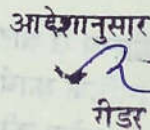 आदेशानुसार
रीडर